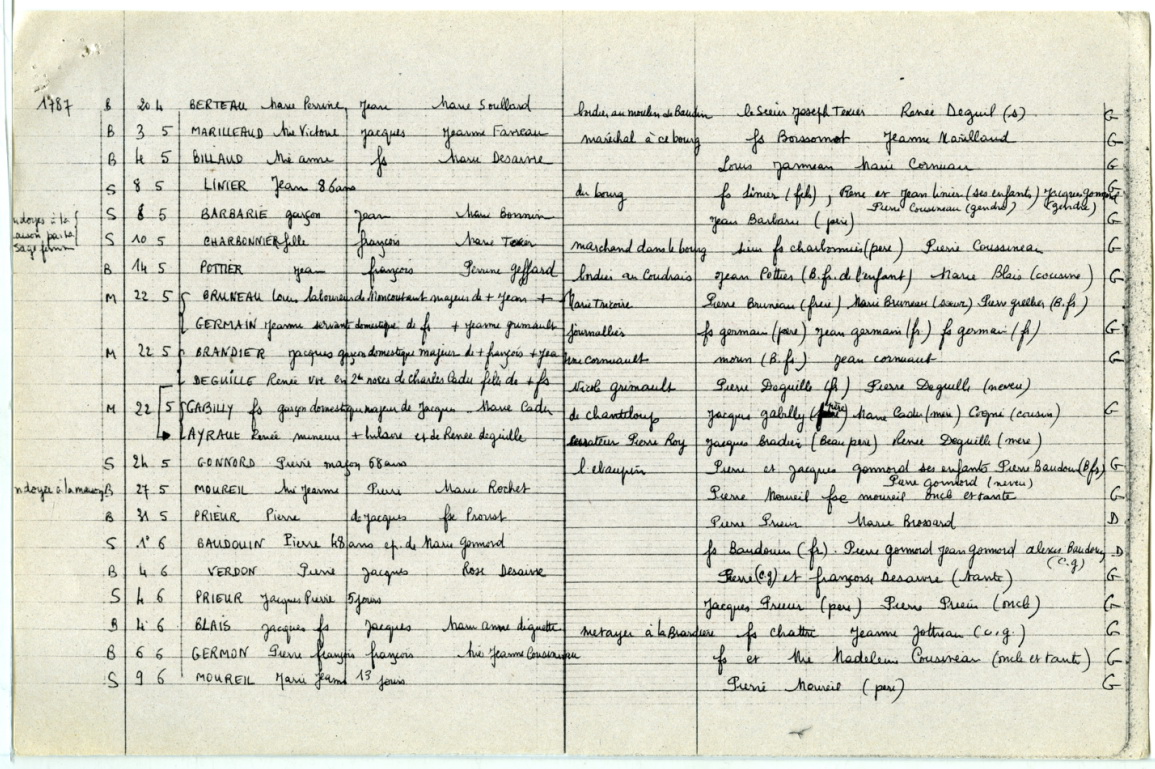 1787 B 20 4 BERTEAU Marie Perrine Jean Marie Soullard bordier au moulin de Baudin le Sieur Joseph Texier Renée Deguil (s) G
B 3 5 MARILLEAUD Mie Victoire Jacques Jeanne Faneau maréchal à ce bourg fs Boissonot Jeanne G
B 4 5 BILLAUD Mie anne fs Marie Desaivre Louis Marie Corneau G
S 8 5 LINIER Jean 86 ans du bourg fs Linier (fils), René et Jean Linier (ses enfants) Jacques (gendre) G
Pierre Cousineau (gendre)
ndoyés à la maison par la Sage femme
S 8 5 BARBARIE garçon Jean Marie Bonnin Jean Barbarie (père) G
S 10 5 CHARBONNIER fille françois Marie Texier marchand dans le bourg sieur fs charbonnier (pere) Pierre Coussineau G
B 14 5 POTTIER Jean françois Perrine geffard bordier au Coudrais Jean Pottier (B.fr. de l'enfant) Marie Blais (cousine) G
M 22 5 BRUNEAU Louis laboureur de Moncoutant majeur de + Jean + Marie Tricoire Pierre Bruneau (frère) Marie Bruneau (sœur) Pierre grellier (B.fs)
GERMAIN Jeanne servante domestique de fs + Jeanne grimault Journallier fs germain (père) Jean germain (fr) fs germain (fr) G
M 22 5 BRANDIER Jacques garçon domestique majeur de + françois + Jeanne cornuault morin (B.fs) Jean cornuault G
DEGUILLE Renée Vve en 2e noces de Charles Cadu fille de + fs Nicole grimault Pierre Deguille (fr) Pierre Deguille (neveu)
M 22 5 GABILLY fs garçon domestique majeur de Jacques - Marie Cadu de chanteloup Jacques gabilly (père) Marie Cadu (mère) Cogné (cousin) G
AYRAULT Renée mineure + hilaire et de Renée deguille Pierre Roy Jacques Bradier (Beau pere) Renée Deguille (mère)
S 24 5 GONNORD Pierre maçon 68 ans l'chaupin Pierre et Jacques gonnord ses enfants Pierre Baudouin (B fs) G
Pierre gonnord (neveu)
ndoyée à la maison B 27 5 MOUREIL Mie Jeanne Pierre Marie Rochet Pierre Moureil fse moureil oncle et tante G
B 31 5 PRIEUR Pierre de Jacques fse Proust Pierre Prieur Marie Brossard D
S 1° 6 BAUDOUIN Pierre 48 ans ep. de Marie Gonnord fs Baudouin (fr). Pierre gonnord Jean gonnord alexis Baudouin D
(c.g)
B 4 6 VERDON Pierre Jacques Rose Desaivre Pierre (c.g) et françoise Desaivre (tante) G
S 4 6 PRIEUR Jacques Pierre 5 jours Jacques Prieur (pere) Pierre Prieur (oncle) G
B 4 6 BLAIS Jacques fs Jacques Marie anne diguette metayer à la Brardiere fs chattre Jeanne Jottreau (c.g.) G
B 6 6 GERMON Pierre françois françois Mie Jeanne Cousineau fs et Mie Madeleine Cousineau (oncle et tante) G
S 9 6 MOUREIL Marie Jeanne 13 jours Pierre Moureil (pere) G